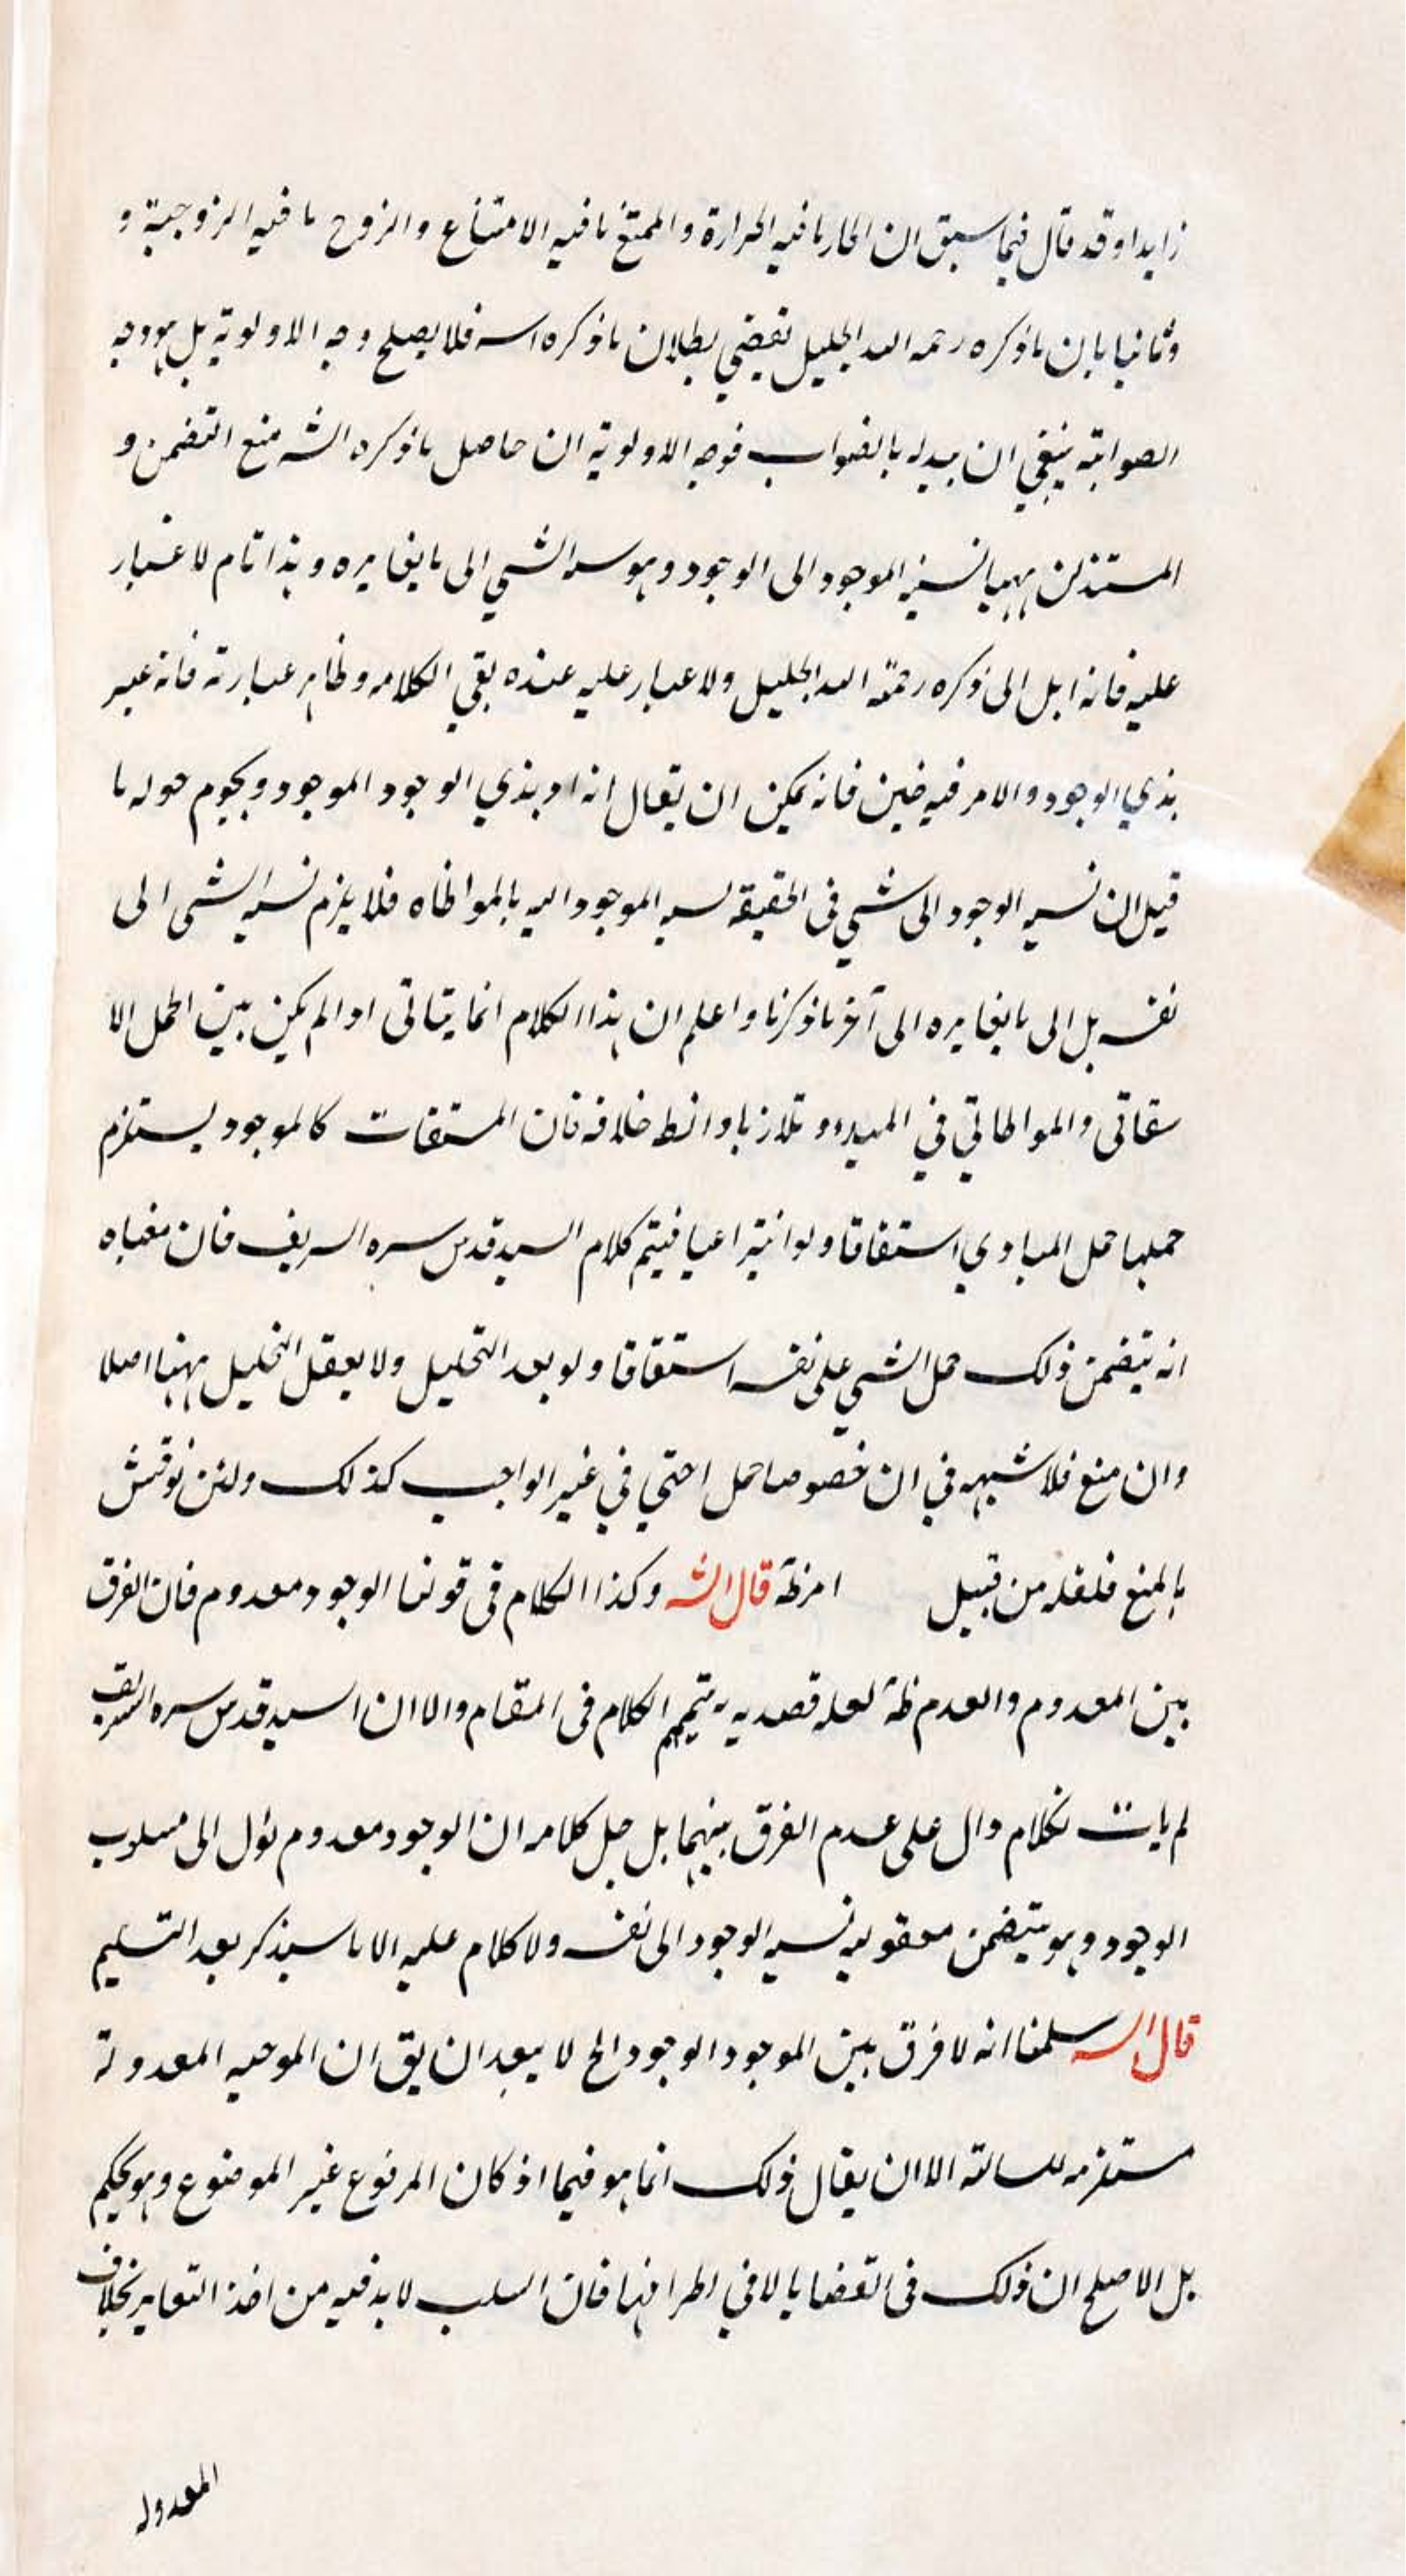 زايدا وقد قال فيما سبق ان الحار ما فيه الحرارة والممتنع ما فيه الامتناع والزوج ما فيه الزوجية و
وثانيا بان ما ذكره رحمه الله الجليل يقتضي بطلان ما ذكره فلا يصلح وجه الاولوية بل هو وجه
ينبغي ان يبدله بالصواب فوجه الاولوية ان حاصل ما ذكره الشه منع التضمن و
الموجود الى الوجود وهو الشي الى ما يغايره وهذا تام لا غبار
عليه فانه ايل الى ذكره رحمة الله الجليل ولا غبار عليه عنده بقي الكلام وظاهر عبارته فانه عبر
بذي الوجود والامر فيه هين فانه يمكن ان يقال انه اد بذي الوجود الموجود ويحوم حوله ما
قيل ان نسبه الوجود الى شي في الحقيقه نسبه الموجود اليه بالمواطاه فلا يلزم نسبه الشى الى
نفسه بل الى ما يغايره الى آخر ما ذكرنا واعلم ان هذا الكلام انما يتاتى اذا لم يكن بين الحمل الا
شتقاقى والمواطاتي في خلافه فان المشتقات كالموجود يستلزم
حملها حمل المبادي اشتقاقا فيتم كلام السيد قدس سره الشريف فان معناه
انه يتضمن ذلك حمل الشي على نفسه اشتقاقا ولو بعد التحليل ولا يعقل التحليل ههنا اصلا
وان منع فلا شبهه في ان خصوصا حمل في غير الواجب كذلك ولئن نوقش
بالمنع فلعله من قبيل قال الشه وكذا الكلام فى قولنا الوجود معدوم فان الفرق
بين المعدوم والعدم ظه لعله قصد به تتميم الكلام فى المقام والا ان السيد قدس سره الشريف
لم يات بكلام دال على عدم الفرق بينهما بل جل كلامه ان الوجود معدوم يؤل الى مسلوب
الوجود وهو يتضمن نسبه الوجود الى نفسه ولا كلام عليه الا ما سيذكر بعد التسليم
قال الشه سلمنا انه لا فرق بين الموجود الوجود الخ لا يبعد ان يق ان الموجبه المعدولة
مستلزمه للسالبه الا ان يقال ذلك انما هو فيما اذ كان المرفوع غير الموضوع وهو تحكم
بل الاصلح ان ذلك فى القضايا لا في اطرافها فان السلب لا بد فيه من اخذ التغاير بخلاف
المعدوله